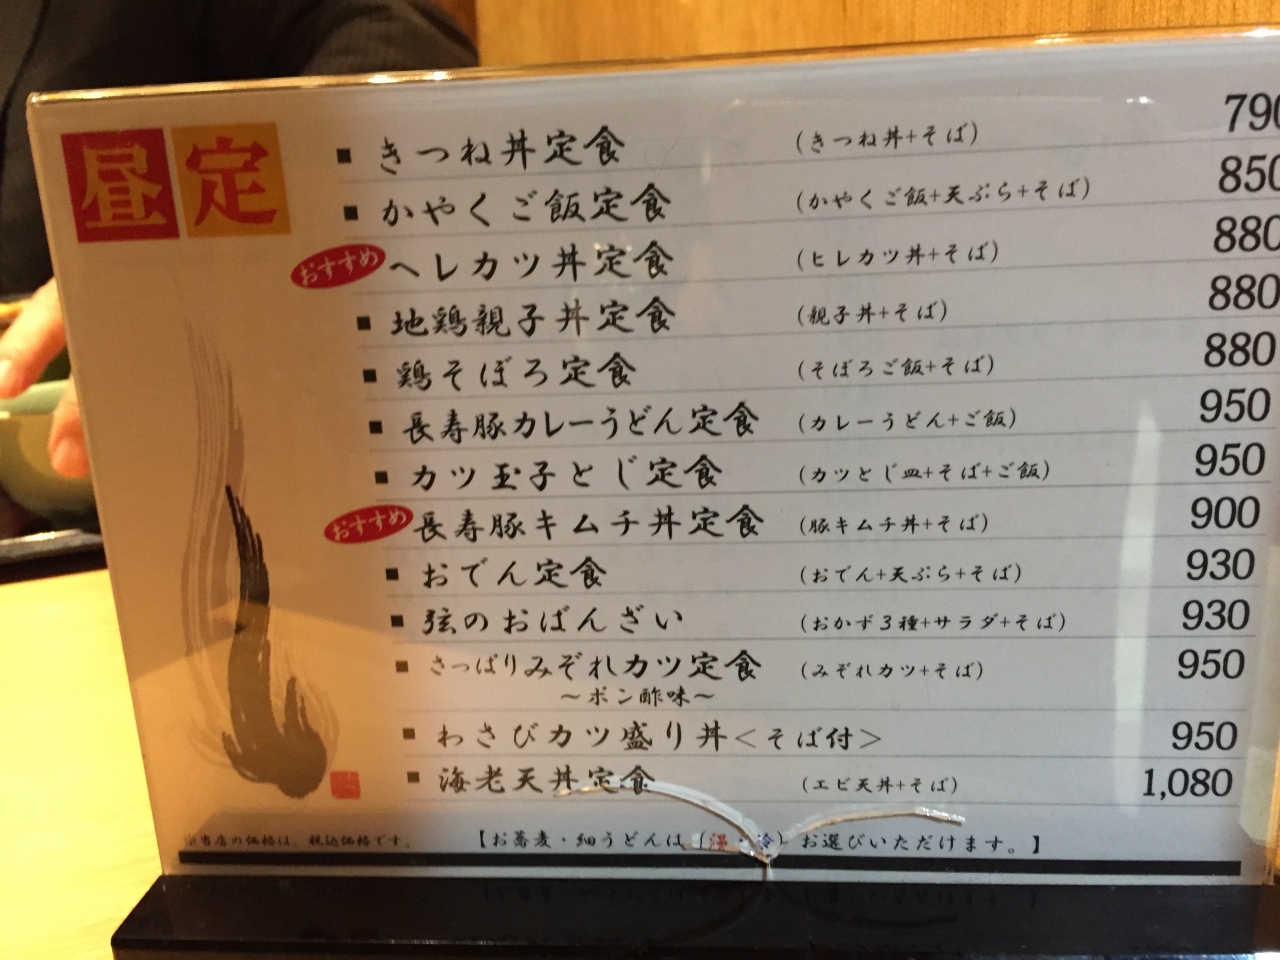 昼定
■ きつね丼定食 (きつね丼+そば) 790
■ かやくご飯定食 (かやくご飯+天ぷら+そば) 850
おすすめ ヘレカツ丼定食 (ヒレカツ丼+そば) 880
■ 地鶏親子丼定食 (親子丼+そば) 880
■ 鶏そぼろ定食 (そぼろご飯+そば) 880
■ 長寿豚カレーうどん定食 (カレーうどん+ご飯) 950
■ カツ玉子とじ定食 (カツとじ皿+そば+ご飯) 950
おすすめ 長寿豚キムチ丼定食 (豚キムチ丼+そば) 900
■ おでん定食 (おでん+天ぷら+そば) 930
■ 弦のおばんざい (おかず3種+サラダ+そば) 930
■ さっぱりみぞれカツ定食 (みぞれカツ+そば) 950
～ポン酢味～
■ わさびカツ盛り丼<そば付> 950
■ 海老天丼定食 (エビ天丼+そば) 1,080
※当店の価格は、税込価格です。 【お蕎麦・細うどんは(温・冷)お選びいただけます。】